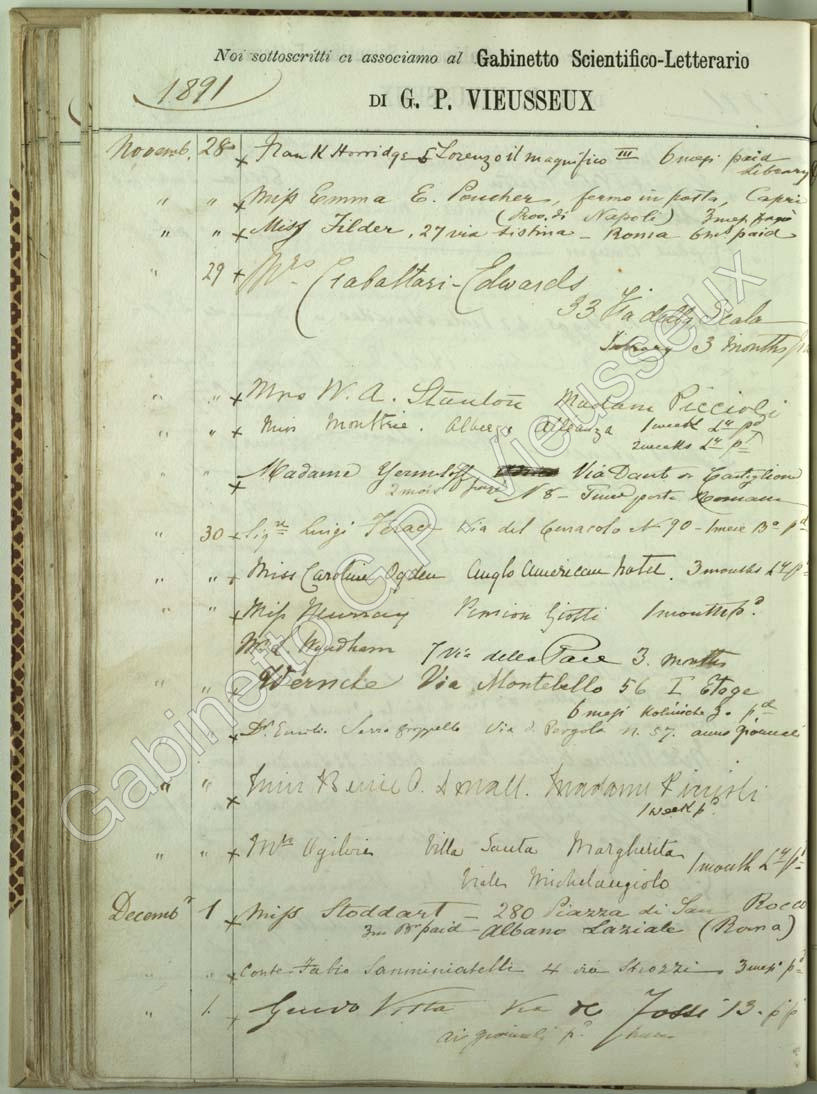 Noi sottoscritti ci associamo al Gabinetto Scientifico-Letterario
1891
DI G. P. VIEUSSEUX
Novemb. 28 x Frank Horridge 5 Lorenzo il magnifico III 6 mesi paid
Library
" " x Miss Emma E. Poucher, fermo in posta, Capri
(Prov. di Napoli) 3 mesi
" " x Miss Tilder, 27 via Sistina - Roma 6 ms paid
" 29 x Mrs Casaltari-Edwards
33 Via della Scala
Library 3 months
" " x Mrs W. A. Stanton Madam Piccioli
" " x Miss Albergo 1 week Ly pd
2 weeks Ly pd
" " x Madame Yermoloff Via Dante Castiglione
2 mois N 8 - porta Romana
" 30 x Sigre Luigi Via del Cenacolo N 90 - 1 mese Bo pd
" " x Miss Caroline Ogden Anglo American hotel. 3 months Ly pd
" " x Miss Murray Pension Giotti 1 month pd.
Mrs Wyndham 7 Via della Pace 3. months
" " x Werncke Via Montebello 56 I Etage
6 mesi pd
" " x Dr. Emilio Via d. Pergola n. 57. anno giornali
" " x Miss O. Small. Madame Piccioli
1 week pd
" " x Mrs Ogilvie Villa Santa Margherita 1 month Ly pd
Viale Michelangiolo
Decembr 1 x Miss Stoddart - 280 Piazza di San Rocco
3m Br paid - Albano Laziale (Roma)
" " x Conte Fabio Sanminiatelli 4 via Strozzi 3 mesi pd
" 1. x Guido Via de Fossi 13.
giornali pd
Gabinetto G.P. Vieusseux